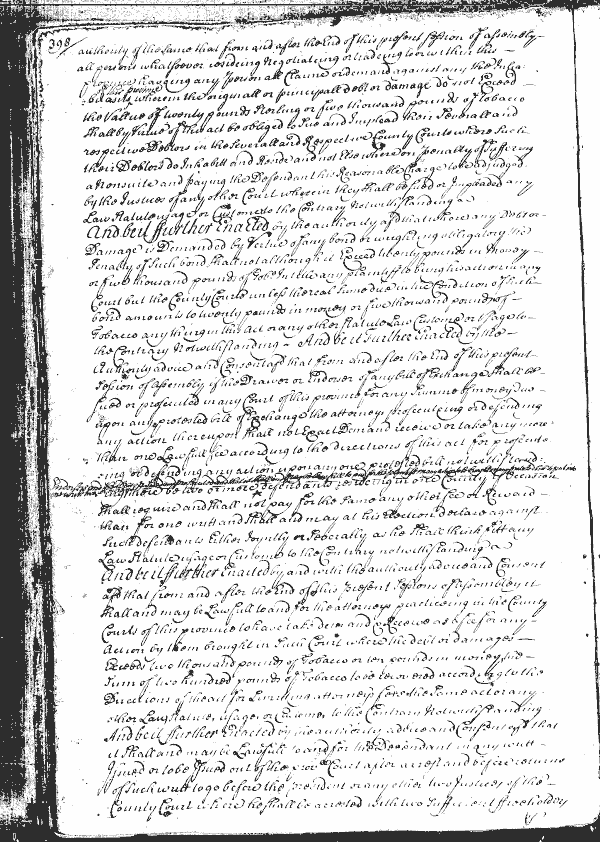 398
authority of the same that from and after the End of this present session of assembly
all persons whatsoever residing Negotiating or trading to or within this
province having any Personall Claime or demand against any the Inha
this province
bitants wherein the originall or principall debt or damage do not Exceed
the Vallue of twenty pounds sterling or five thousand pounds of Tobacco
shall by Virtue of this act be obliged to Sue and Implead their Personall and
respective Debtors in the Severall and Respective County Courts where Such
their Debtors do Inhabitt and Reside and not Elsewhere on penalty of Suffering
a nonsuite and paying the Defendant his Reasonable Charge to be adjudged
by the Justices of any other Court wherein they shall be sued or Impleaded any
Law statute usage or Custome to the Contrary Notwithstanding
And be it further Enacted by the authority afd that where any Debt or
Damage is Demanded by Vertue of any bond or wrighting obligatory the
Penalty of Such bond shall not although it Exceed twenty pounds in money
or five thousand pounds of Tobo Intitle any plaintiff to bring his action in any
Court but the County Courts unless the reall sume due in the Condition of Such
bond amounts to twenty pounds in money or five thousand pounds of
Tobacco any thing in this Act or any other statute Law Custome or usage to
the Contrary Notwithstanding And be it further Enacted by the
Authority advice and Consent afd that from and after the End of this present
Session of assembly if the Drawer or Endorser of any bill of Exchange shall be
sued or prosecuted in any Court of this province for any Summe of money due
upon any protested bill of Exchange the attorney prosecuteing or defending
any action thereupon shall not Exact Demand receive or take any more
than one Lawfull fee according to the directions of this act for prosecu
ting or defending any action upon any one protested bill notwithstand
there be two or more defendants resideing in one County if occasion
shall require and shall not pay for the same any other fee or Reward
than for one writt and shall and may at his Election declare against
Such defendants Either Joyntly or Severally as he shall think fitt any
Law Statute usage or Custome to the Contrary notwithstanding
And be it further Enacted by and with the authority advice and Consent
afd that from and after the End of this present Sessions of assembly it
shall and may be Lawfull to and for the attorneys practiceing in the County
Courts of this province to have take demand & Receive as a fee for any
Action by them brought in Such Court where the debt or damages
Exceeds two thousand pounds of Tobacco or ten pounds in money the
Sum of two hundred pounds of Tobacco to be recovered according to the
Directions of the act for Limiting attorneys fees the Same act or any
other Law, Statute, usage, or Custome to the Contrary Notwithstanding
And be it further Enacted by the authority advice and Consent afd that
it shall and may be Lawfull to and for the Defendant in any writt
Issued or to be Issued out of the Court after arrest and before returne
of Such writt to go before the president or any other two Justices of the
County Court where he shall be arrested with two Sufficient freeholders